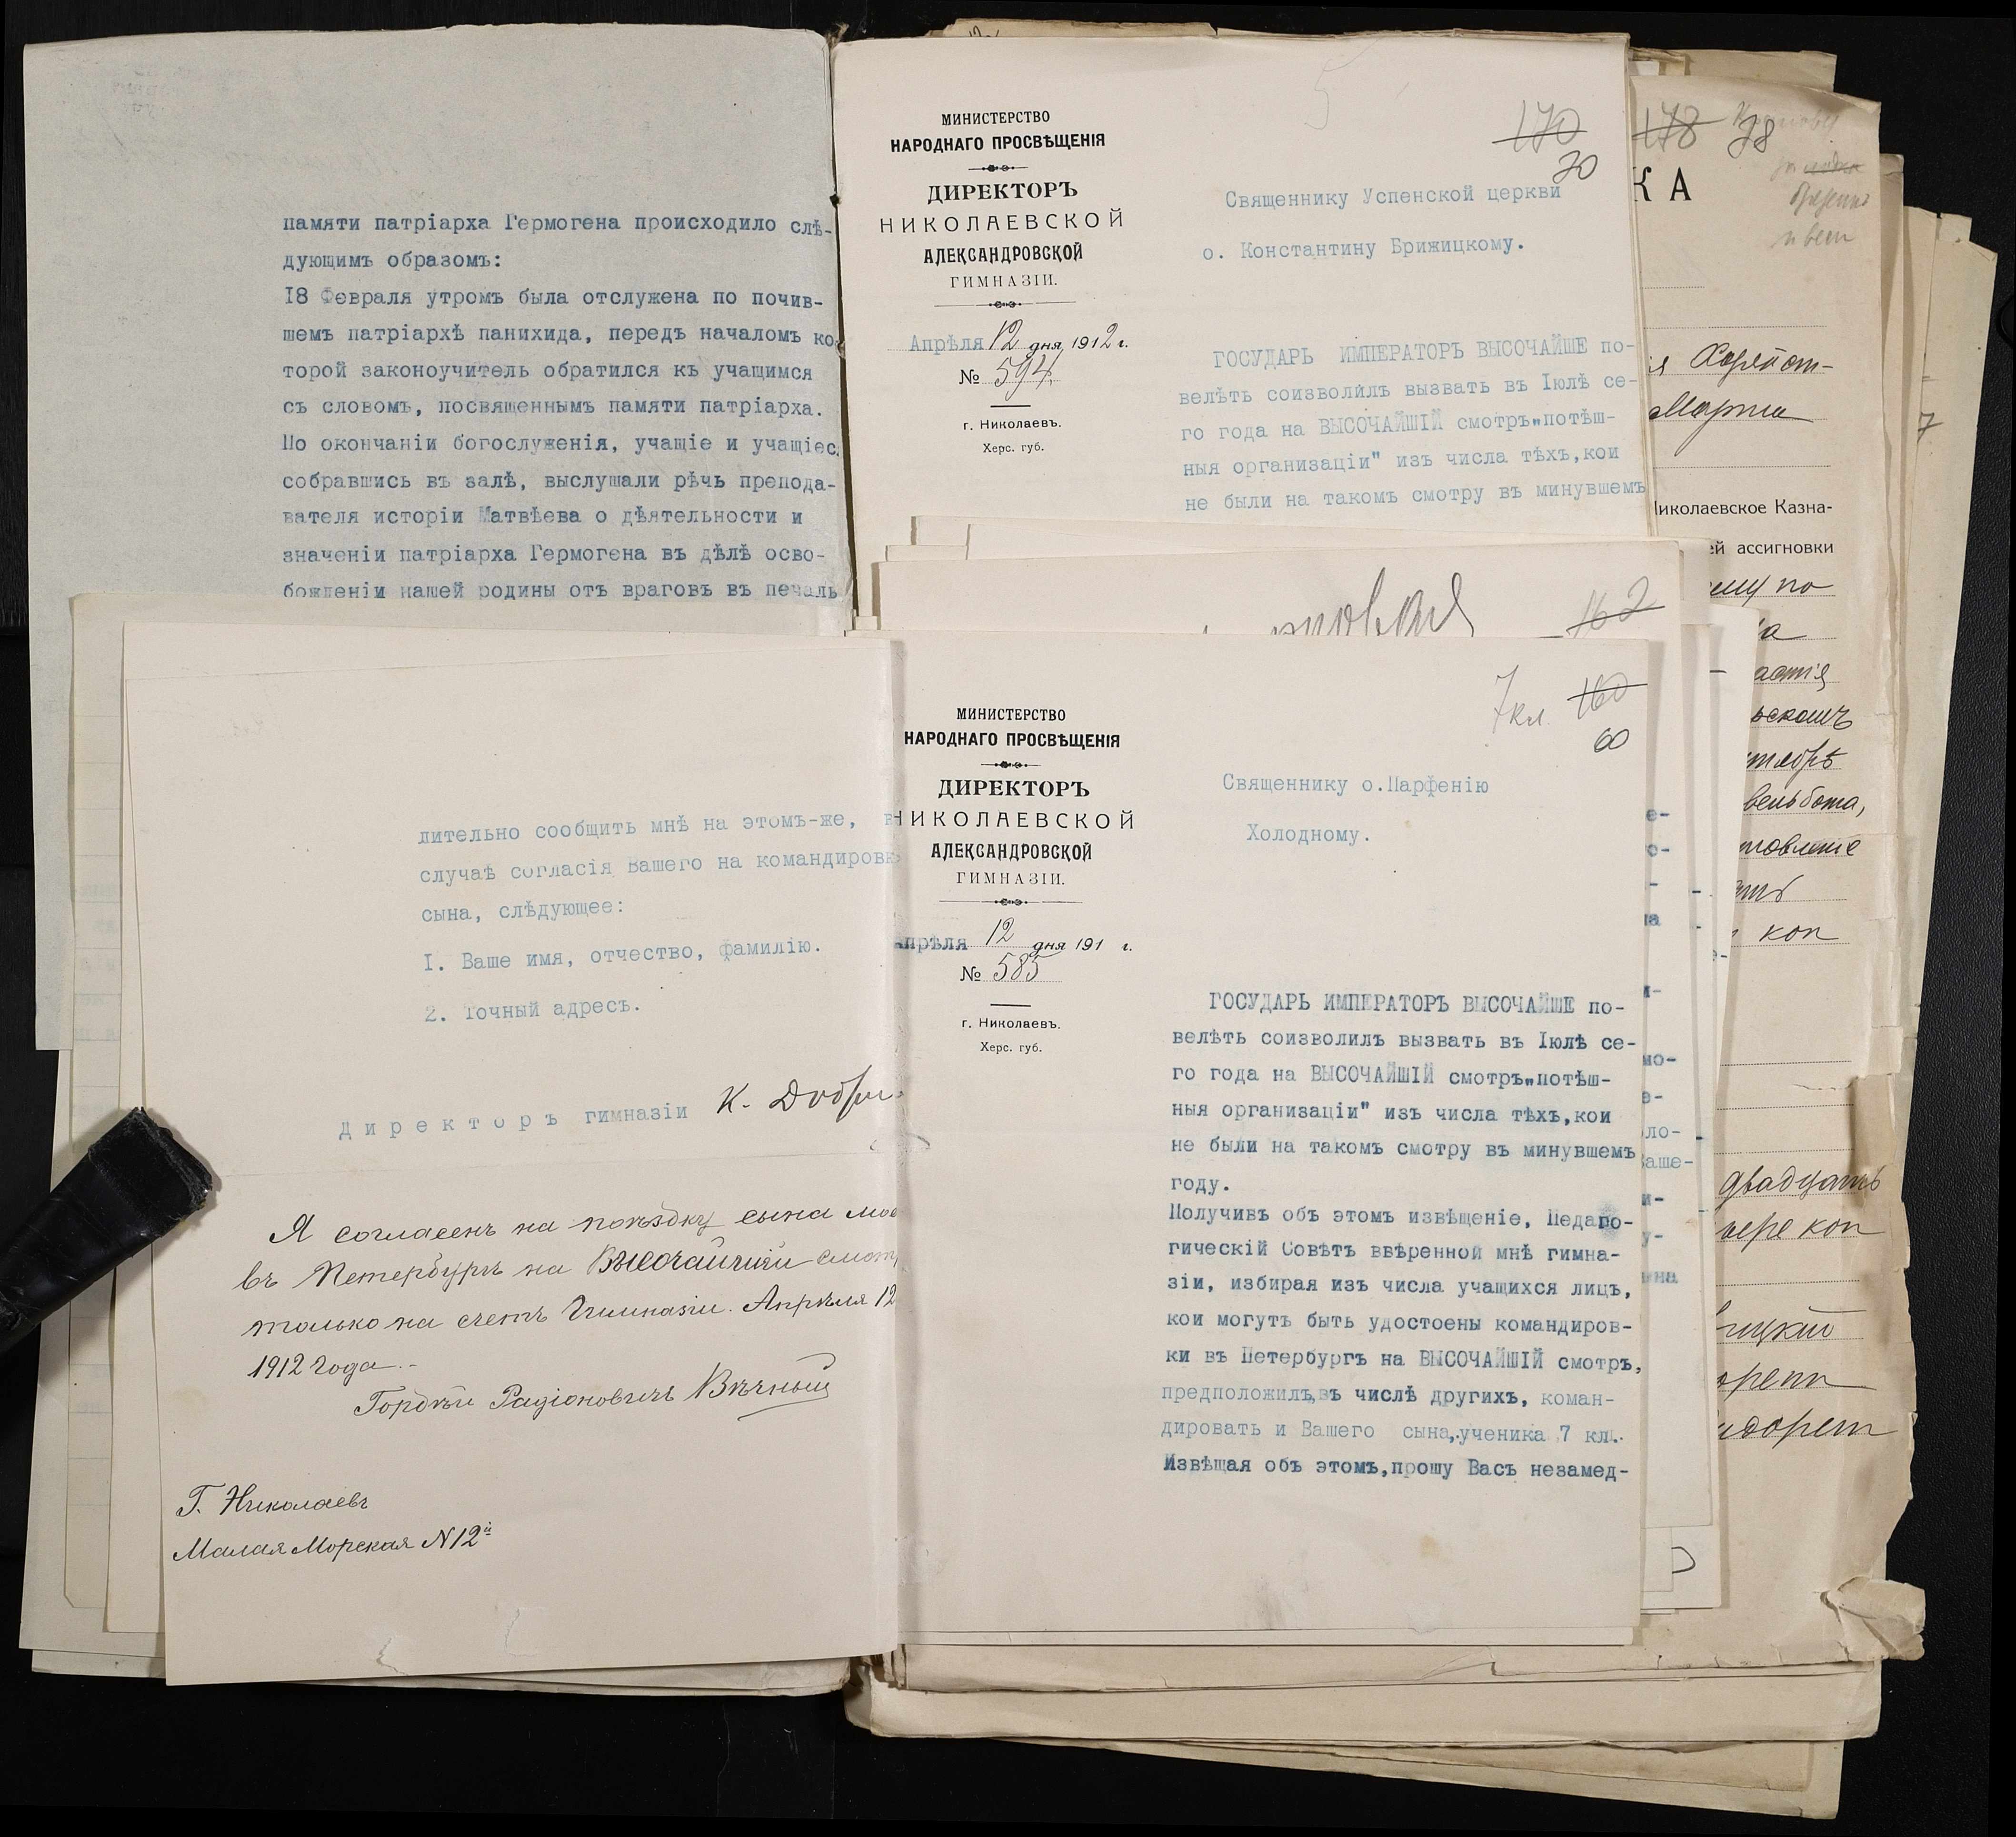 памяти патріарха Гермогена происходило слѣ-
дующимъ образомъ:
18 Февраля утромъ была отслужена по почив-
шемъ патріархѣ панихида, передъ началомъ ко
торой законоучитель обратился къ учащимся
съ словомъ, посвященнымъ памяти патріарха.
По окончаніи богослуженія, учащіе и учащіес
собравшись въ залѣ, выслушали рѣчь препода-
вателя исторіи Матвѣева о дѣятельности и
значеніи патріарха Гермогена въ дѣлѣ осво-
божденіи нашей родины отъ враговъ въ печаль
МИНИСТЕРСТВО
НАРОДНАГО ПРОСВѢЩЕНІЯ
ДИРЕКТОРЪ
НИКОЛАЕВСКОЙ
АЛЕКСАНДРОВСКОЙ
ГИМНАЗІИ.
Апрѣля 12 дня 1912 г.
№ 594.
г. Николаевъ.
Херс. губ.
170
70
Священнику Успенской церкви
о. Константину Брижицкому.
ГОСУДАРЬ ИМПЕРАТОРЪ ВЫСОЧАЙШЕ по-
велѣть соизволилъ вызвать въ Іюлѣ се-
го года на ВЫСОЧАЙШІЙ смотръ„потѣш-
ныя организаціи" изъ числа тѣхъ,кои
не были на такомъ смотру въ минувшемъ
178 78
КА
Марта
Николаевское Казна-
ей ассигновки
по
двадцать
коп
162
лительно сообщить мнѣ на этомъ-же, в
случаѣ согласія Вашего на командировк
сына, слѣдующее:
1. Ваше имя, отчество, фамилію.
2. Точный адресъ.
Директоръ гимназіи К.
Я согласенъ на поѣздку сына мое
въ Петербургъ на Высочайшій смотр
только на счетъ Гимназіи. Апрѣля 12
1912 года.-
Гордѣй Радіоновичъ Вѣчный
Г. Николаевъ
Малая Морская N 12й
МИНИСТЕРСТВО
НАРОДНАГО ПРОСВѢЩЕНІЯ
ДИРЕКТОРЪ
НИКОЛАЕВСКОЙ
АЛЕКСАНДРОВСКОЙ
ГИМНАЗІИ.
Апрѣля 12 дня 191 г.
№ 585
г. Николаевъ.
Херс. губ.
7 кл. 160
60
Священнику о.Парфенію
Холодному.
ГОСУДАРЬ ИМПЕРАТОРЪ ВЫСОЧАЙШЕ по-
велѣть соизволилъ вызвать въ Іюлѣ се-
го года на ВЫСОЧАЙШІЙ смотръ„потѣш-
ныя организаціи" изъ числа тѣхъ,кои
не были на такомъ смотру въ минувшемъ
году.
Получивъ объ этомъ извѣщеніе, Педаго-
гическій Совѣтъ ввѣренной мнѣ гимна-
зіи, избирая изъ числа учащихся лицъ,
кои могутъ быть удостоены командиров-
ки въ Петербургъ на ВЫСОЧАЙШІЙ смотръ,
предположилъ,въ числѣ другихъ, коман-
дировать и Вашего сына,ученика 7 кл.
Извѣщая объ этомъ,прошу Васъ незамед-